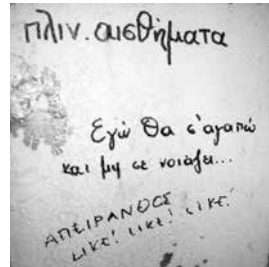 πλιν. αισθήματα
Εγώ θα σ'αγαπώ
και μη σε νοιάζει...
ΑΠΕΙΡΑΝΘΟΣ
LIKE! LIKE! LIKE!